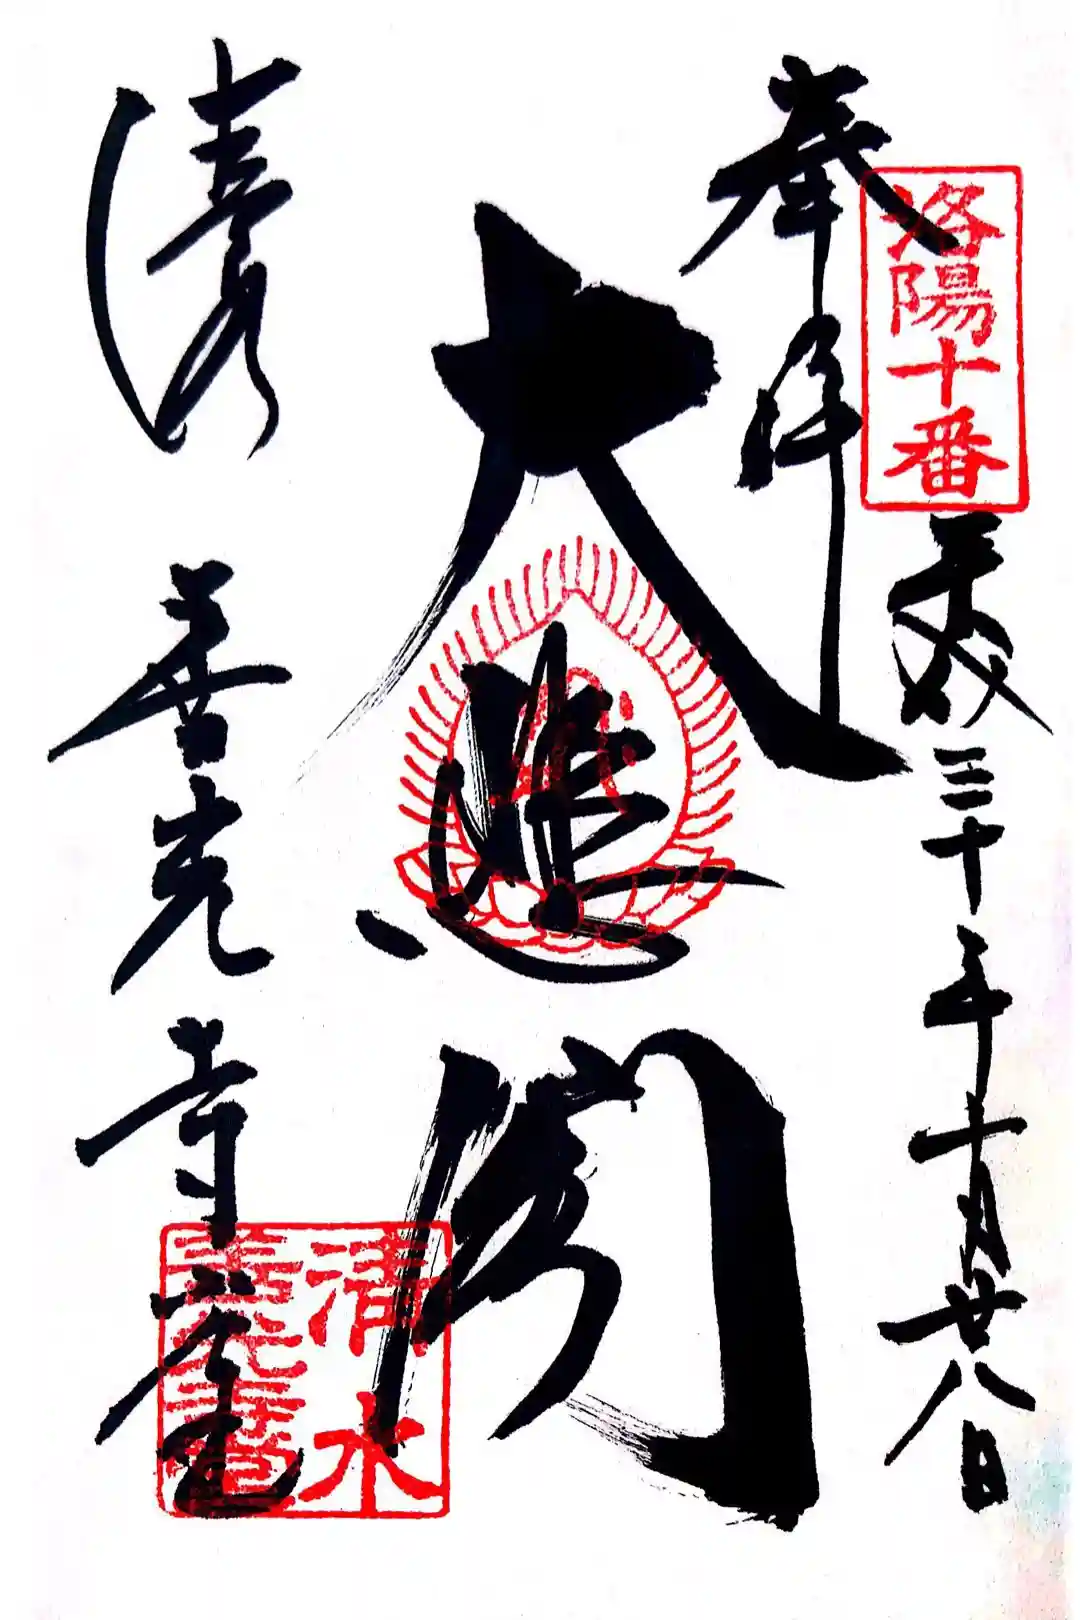 奉拝
洛陽十番
平成三十年十月廿八日
大悲閣
清水 善光寺堂
清水
善光寺堂